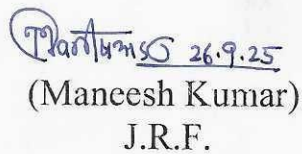 26.9.25
(Maneesh Kumar)
J.R.F.